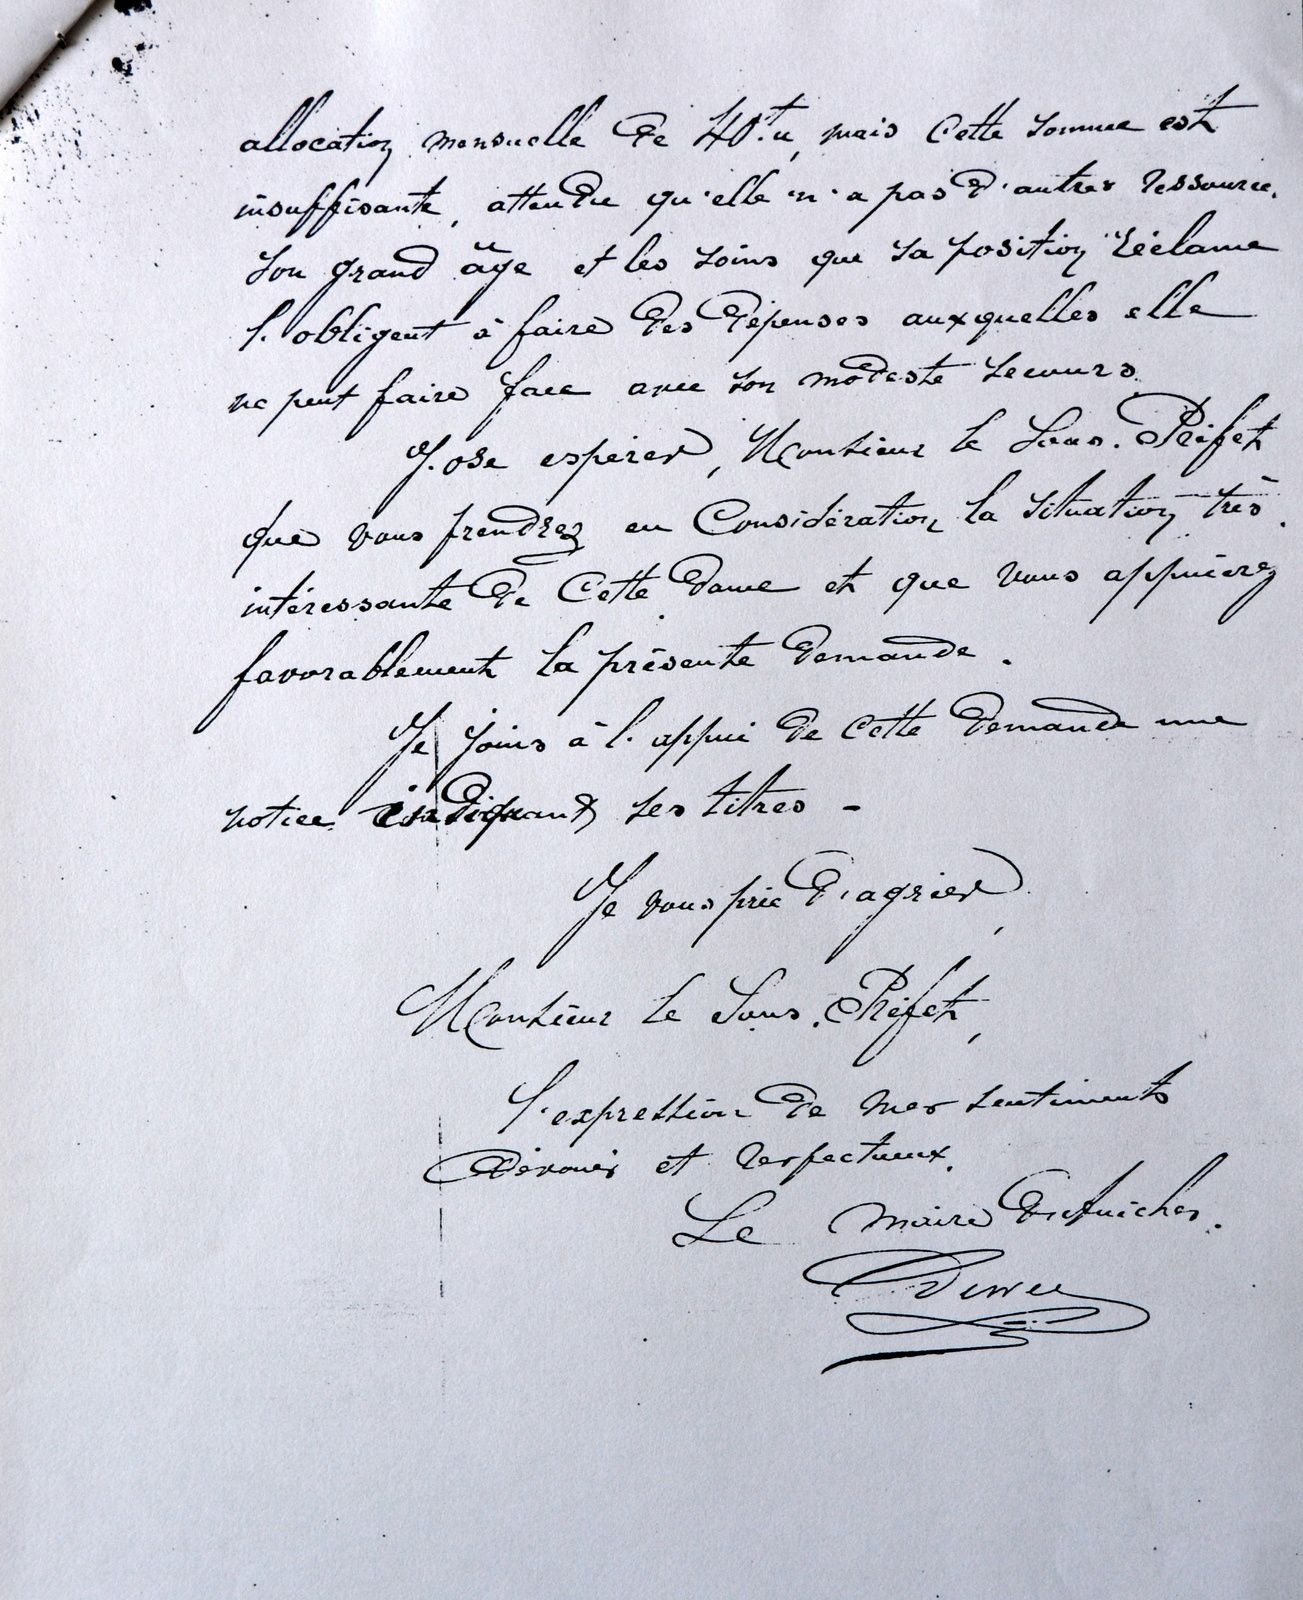 allocation mensuelle de 40 mais cette somme est
insuffisante, attendu qu'elle n'a pas d'autres ressources.
Son grand âge et les soins que sa position réclame
l'obligent à faire des dépenses auxquelles elle
ne peut faire face avec son modeste secours.
J'ose espérer, Monsieur le Sous-Préfet
que vous prendrez en Considération la situation très
intéressante de cette dame et que vous appuierez
favorablement la présente demande.
Je joins à l'appui de cette demande une
notice indiquant ses titres -
Je vous prie d'agréer,
Monsieur le Sous-Préfet,
l'expression de mes sentiments
dévoués et respectueux.
Le Maire